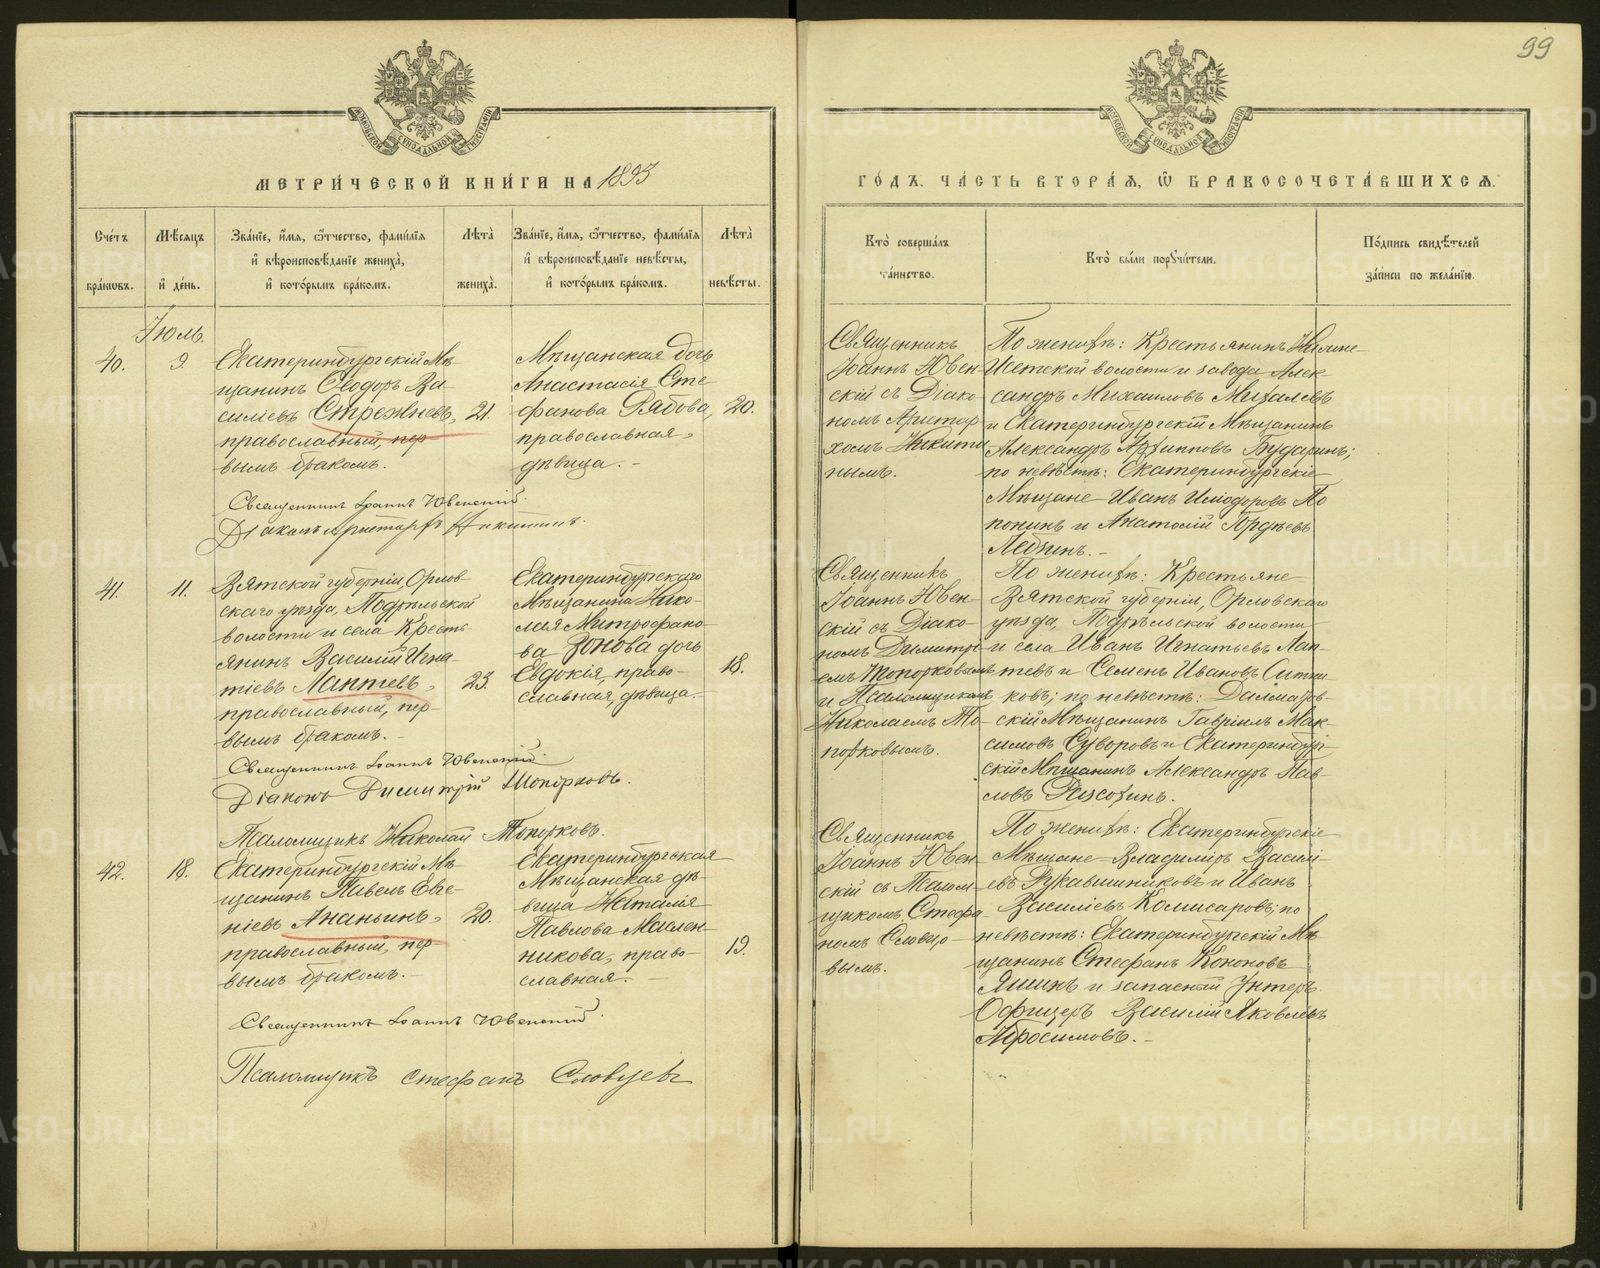 99
МЕТРИ́ЧЕСКОЙ КНИ́ГИ НА 1893
ГО́ДЪ. ЧА́СТЬ ВТОРА́Я, Ѽ БРАКОСОЧЕТА́ВШИХСЯ.
Сче́тъ бра́ковъ.
Мѣ́сяцъ и҆ де́нь.
Зва́нїе, и҆́мя, ѻ҆́тчество, фами́лїя
и҆ вѣроисповѣ́данїе жениха̀,
и҆ кото́рымъ бра́комъ.
Лѣ́та жениха̀.
Зва́нїе, и҆́мя, ѻ҆́тчество, фами́лїя
и҆ вѣроисповѣ́данїе невѣ́сты,
и҆ кото́рымъ бра́комъ.
Лѣ́та невѣ́сты.
Кто̀ соверша́лъ
та́инство.
Кто̀ бы́ли порꙋчи́тели.
По́дпись свидѣ́телей
за́писи по жела́нїю.
Іюль.
40.
9.
Екатеринбургскій мѣ-
щанинъ Ѳеодоръ Ва-
силіевъ Стрежневъ,
православный, пер-
вымъ бракомъ.
21.
Мѣщанская дочь
Анастасія Сте-
фанова Рябова,
православная,
дѣвица. -
20.
Священникъ
Іоаннъ Ювен-
скій съ Діако-
номъ Аристар-
хомъ Никити-
нымъ.
По женихѣ: Крестьянинъ Нижне-
Исетской волости и завода Алек-
сандръ Михаиловъ Михалевъ
и Екатеринбургскій мѣщанинъ
Александръ Архипповъ Бударинъ;
по невѣстѣ: Екатеринбургскіе
мѣщане Иванъ Исидоровъ По-
понинъ и Анатолій Гордѣевъ
Священникъ Іоаннъ Ювенскій.
Діаконъ Аристархъ Никитинъ.
41.
11.
Вятской губерніи, Орлов-
скаго уѣзда, Подрѣльской
волости и села Кресть-
янинъ Василій Игна-
тіевъ Лаптевъ,
православный, пер-
вымъ бракомъ. -
23.
Екатеринбургскаго
мѣщанина Нико-
лая Митрофано-
ва Зонова дочь
Евдокія, право-
славная, дѣвица. -
18.
Священникъ
Іоаннъ Ювен-
скій съ Діако-
номъ Димитрі-
емъ Топорковымъ
и Псаломщикомъ
Николаемъ То-
порковымъ.
По женихѣ: Крестьяне
Вятской губерніи, Орловскаго
уѣзда, Подрѣльской волости
и села Иванъ Игнатьевъ Лап-
тевъ и Семенъ Ивановъ Ситни-
ковъ; по невѣстѣ: Далматов-
скій мѣщанинъ Гавріилъ Мак-
симовъ Суворовъ и Екатеринбур-
скій мѣщанинъ Александръ Пав-
ловъ
Священникъ Іоаннъ Ювенскій
Діаконъ Димитрій Топорковъ.
Псаломщикъ Николай Топорковъ.
42.
18.
Екатеринбургскій мѣ-
щанинъ Павелъ Евге-
ніевъ Ананьинъ,
православный, пер-
вымъ бракомъ. -
20.
Екатеринбургская
мѣщанская дѣ-
вица Наталія
Павлова Маслен-
никова, право-
славная. -
19.
Священникъ
Іоаннъ Ювен-
скій съ Псалом-
щикомъ Стефа-
номъ Словцо-
вымъ.
По женихѣ: Екатеринбургскіе
мѣщане Владиміръ Василі-
евъ Рукавишниковъ и Иванъ
Василіевъ Комисаровъ; по
невѣстѣ: Екатеринбургскій мѣ-
щанинъ Стефанъ Кононовъ
Яшинъ и запасной Унтеръ-
Офицеръ Василій Яковлевъ
Абросимовъ. -
Священникъ Іоаннъ Ювенскій.
Псаломщикъ Стефанъ Словцевъ
METRIKI.GASO-URAL.RU